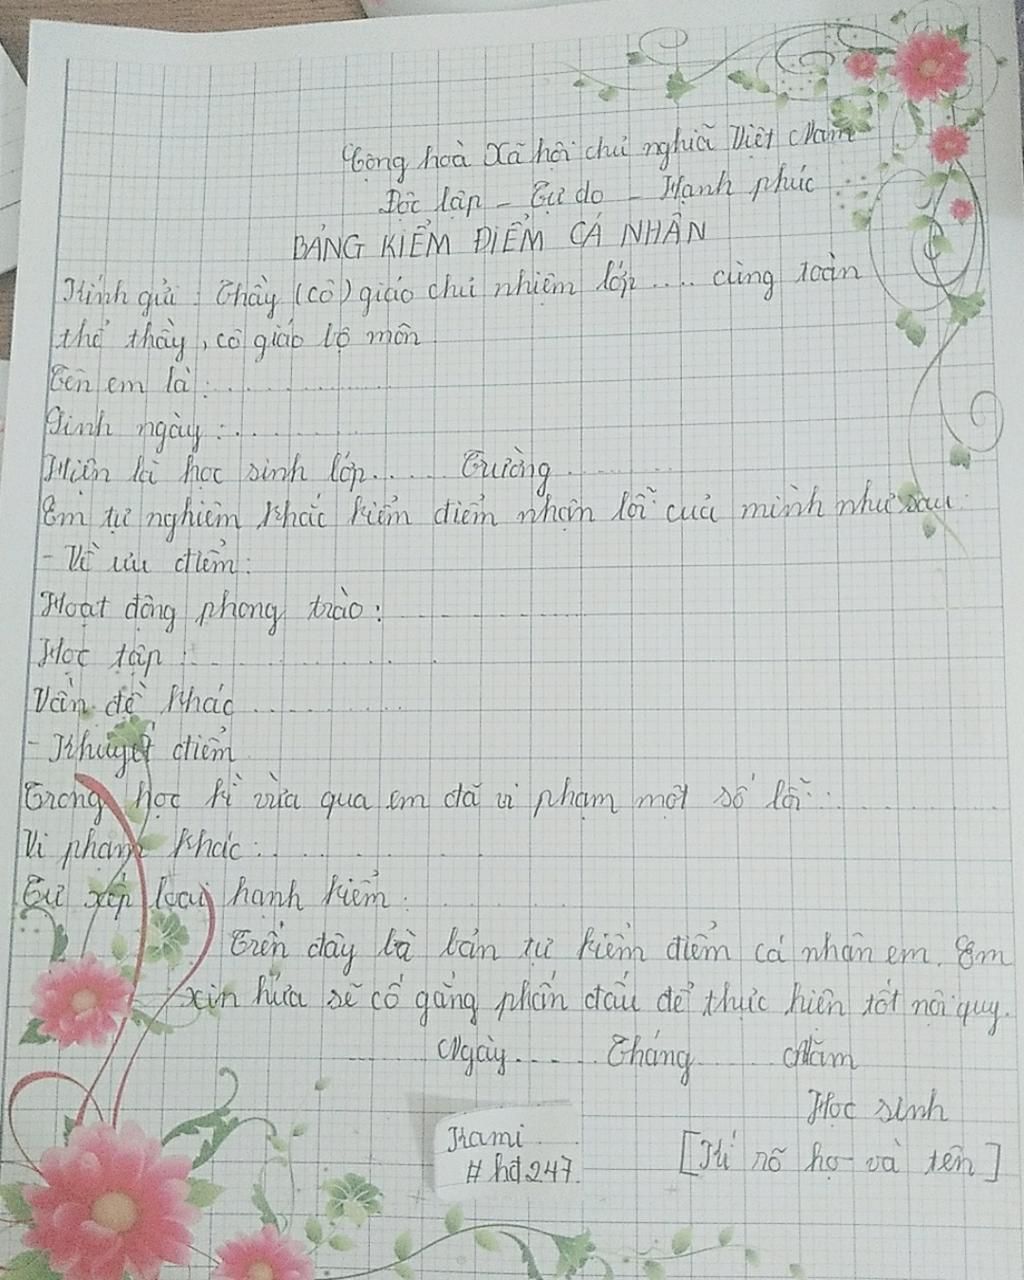 Cộng hoà Xã hội chủ nghĩã Việt Nam
Độc lập - Tự do - Hạnh phúc
BẢNG KIỂM ĐIỂM CÁ NHÂN
Kính gửi : Thầy (cô) giáo chủ nhiệm lớp .... cùng toàn
thể thầy, cô giáo bộ môn
Tên em là : ...............
Sinh ngày : ...............
Hiện là học sinh lớp....... Trường ............
Em tự nghiêm khắc kiểm điểm nhận lỗi của mình như sau :
- Về ưu điểm :
Hoạt động phong trào : ...............
Học tập : ...............
Vấn đề khác ...............
- Khuyết điểm
Trong học kì vừa qua em đã vi phạm một số lỗi : ............
Vi phạm khác : ...............
Tự xếp loại hạnh kiểm : ............
Trên đây là bản tự kiểm điểm cá nhân em. Em
xin hứa sẽ cố gắng phấn đấu để thực hiện tốt nội quy.
........ Ngày ...... Tháng ...... Năm
Học sinh
[Kí rõ họ và tên]
Kami
#hd247.